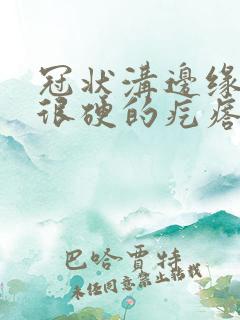 冠状溝邊缘
很硬的疙瘩
巴哈賈特
未任同意禁止转载